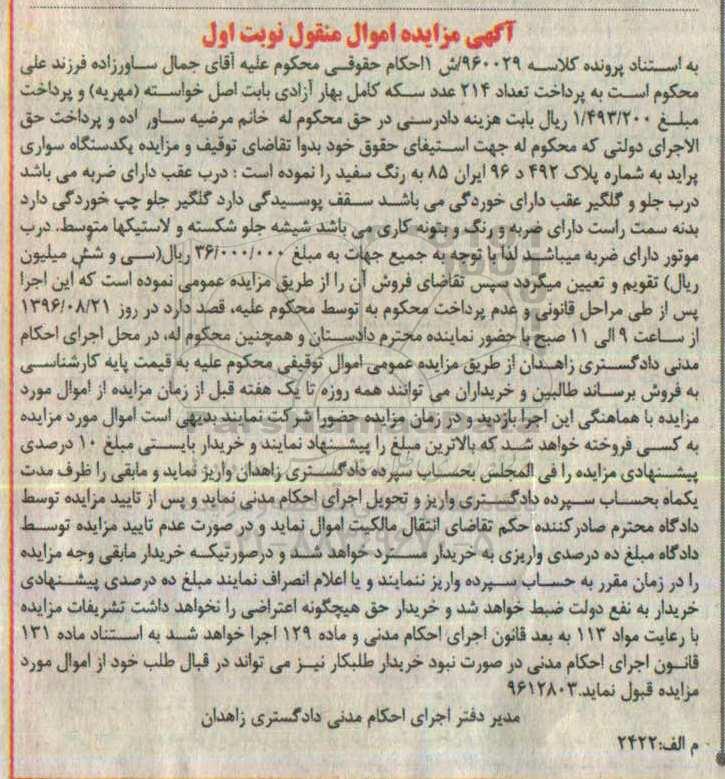 آگهی مزایده اموال منقول نوبت اول
به استناد پرونده کلاسه ۹۶۰۰۲۹/ش ۱احکام حقوقی محکوم علیه آقای جمال ساورزاده فرزند علی
محکوم است به پرداخت تعداد ۲۱۴ عدد سکه کامل بهار آزادی بابت اصل خواسته (مهریه) و پرداخت
مبلغ ۱/۴۹۳/۲۰۰ ریال بابت هزینه دادرسی در حق محکوم له خانم مرضیه و پرداخت حق
الاجرای دولتی که محکوم له جهت استیفای حقوق خود بدوا تقاضای توقیف و مزایده یکدستگاه سواری
پراید به شماره پلاک ۴۹۲ د ۹۶ ایران ۸۵ به رنگ سفید را نموده است : درب عقب دارای ضربه می باشد
درب جلو و گلگیر عقب دارای خوردگی می باشد سقف پوسیدگی دارد گلگیر جلو چپ خوردگی دارد
بدنه سمت راست دارای ضربه و رنگ و بتونه کاری می باشد شیشه جلو شکسته و لاستیکها متوسط، درب
موتور دارای ضربه میباشد لذا با توجه به جمیع جهات به مبلغ ۳۶/۰۰۰/۰۰۰ ریال(سی و شش میلیون
ریال) تقویم و تعیین میگردد سپس تقاضای فروش آن را از طریق مزایده عمومی نموده است که این اجرا
پس از طی مراحل قانونی و عدم پرداخت محکوم به توسط محکوم علیه، قصد دارد در روز ۱۳۹۶/۰۸/۲۱
از ساعت ۹ الی ۱۱ صبح با حضور نماینده محترم دادستان و همچنین محکوم له، در محل اجرای احکام
مدنی دادگستری زاهدان از طریق مزایده عمومی اموال توقیفی محکوم علیه به قیمت پایه کارشناسی
به فروش برساند طالبین و خریداران می توانند همه روزه تا یک هفته قبل از زمان مزایده از اموال مورد
مزایده با هماهنگی این اجرا بازدید و در زمان مزایده حضورا شرکت نمایند بدیهی است اموال مورد مزایده
به کسی فروخته خواهد شد که بالاترین مبلغ را پیشنهاد نمایند و خریدار بایستی مبلغ ۱۰ درصدی
پیشنهادی مزایده را فی المجلس بحساب سپرده دادگستری زاهدان واریز نماید و مابقی را ظرف مدت
یکماه بحساب سپرده دادگستری واریز و تحویل اجرای احکام مدنی نماید و پس از تایید مزایده توسط
دادگاه محترم صادرکننده حکم تقاضای انتقال مالکیت اموال نماید و در صورت عدم تایید مزایده توسط
دادگاه مبلغ ده درصدی واریزی به خریدار مسترد خواهد شد و درصورتیکه خریدار مابقی وجه مزایده
را در زمان مقرر به حساب سپرده واریز ننمایند و یا اعلام انصراف نمایند مبلغ ده درصدی پیشنهادی
خریدار به نفع دولت ضبط خواهد شد و خریدار حق هیچگونه اعتراضی را نخواهد داشت تشریفات مزایده
با رعایت مواد ۱۱۳ به بعد قانون اجرای احکام مدنی و ماده ۱۲۹ اجرا خواهد شد به استناد ماده ۱۳۱
قانون اجرای احکام مدنی در صورت نبود خریدار طلبکار نیز می تواند در قبال طلب خود از اموال مورد
مزایده قبول نماید.۹۶۱۲۸۰۳
مدیر دفتر اجرای احکام مدنی دادگستری زاهدان
م الف:۲۴۲۲